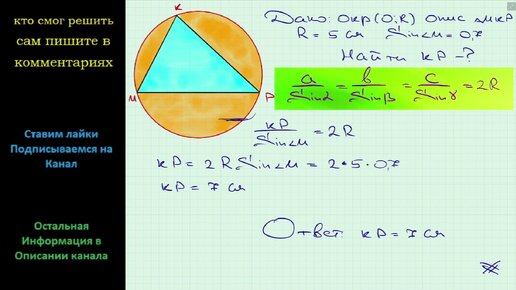 кто смог решить
сам пишите в
комментариях
Ставим лайки
Подписываемся на
Канал
Остальная
Информация в
Описании канала
K
M
P
Дано: Окр(O;R) Опис ΔMKP
R = 5 см Sin∠M = 0,7
Найти KP - ?
a/Sinα = b/Sinβ = c/Sinγ = 2R
KP/Sin∠M = 2R
KP = 2R Sin∠M = 2•5•0,7
KP = 7 см
Ответ: KP = 7 см